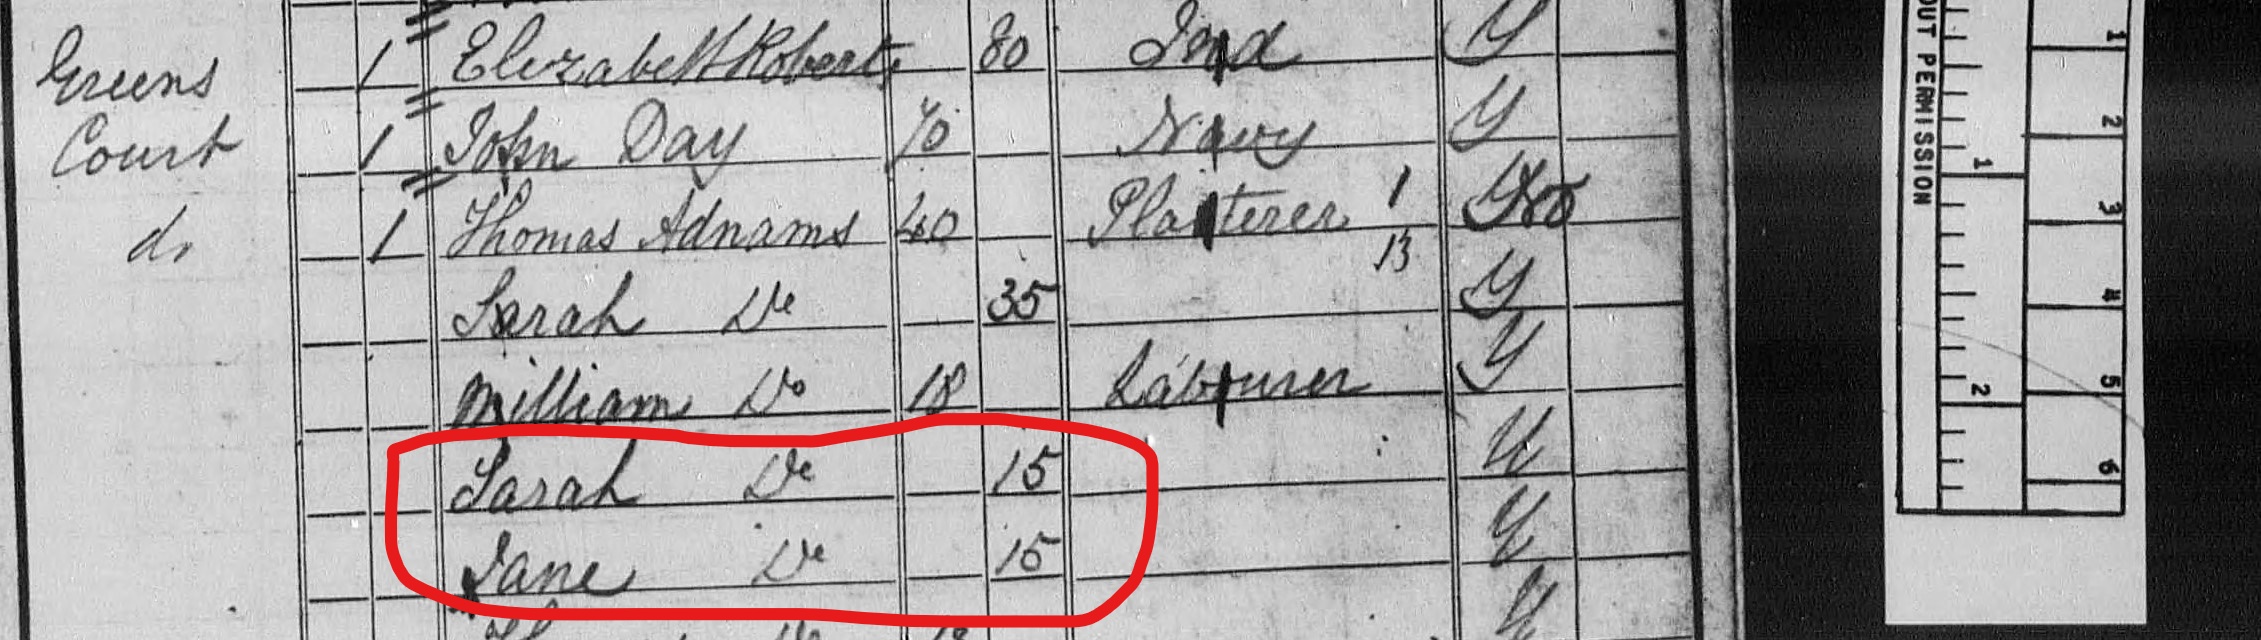 Greens 1 Elizabeth Roberts 80 Ind Y
Court 1 John Day 70 Navy Y
do 1 Thomas Adnams 40 Plasterer 1 No
13
Sarah Do 35 Y
William Do 18 Labourer Y
Sarah Do 15 Y
Jane Do 15 Y
Do Y
OUT PERMISSION
1 2
1 2 3 4 5 6